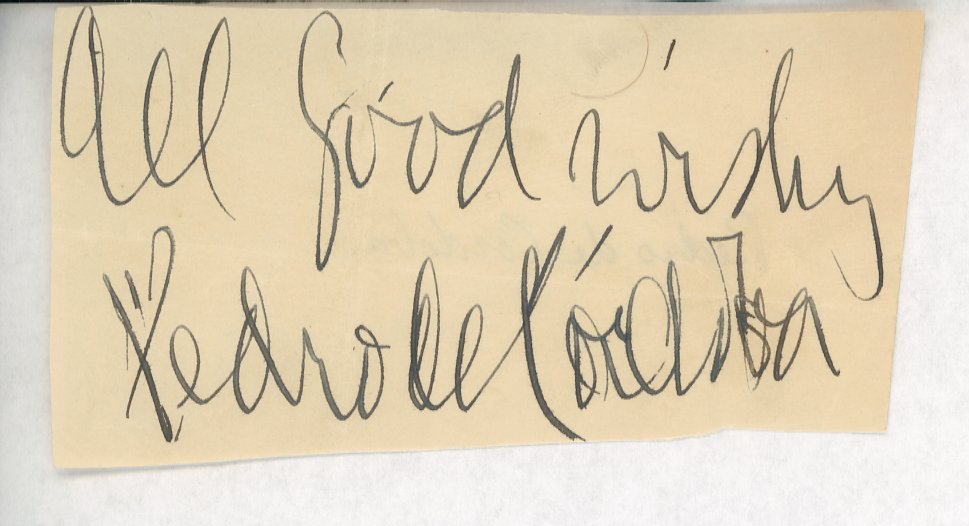 All good wishes
Pedro de Cordoba